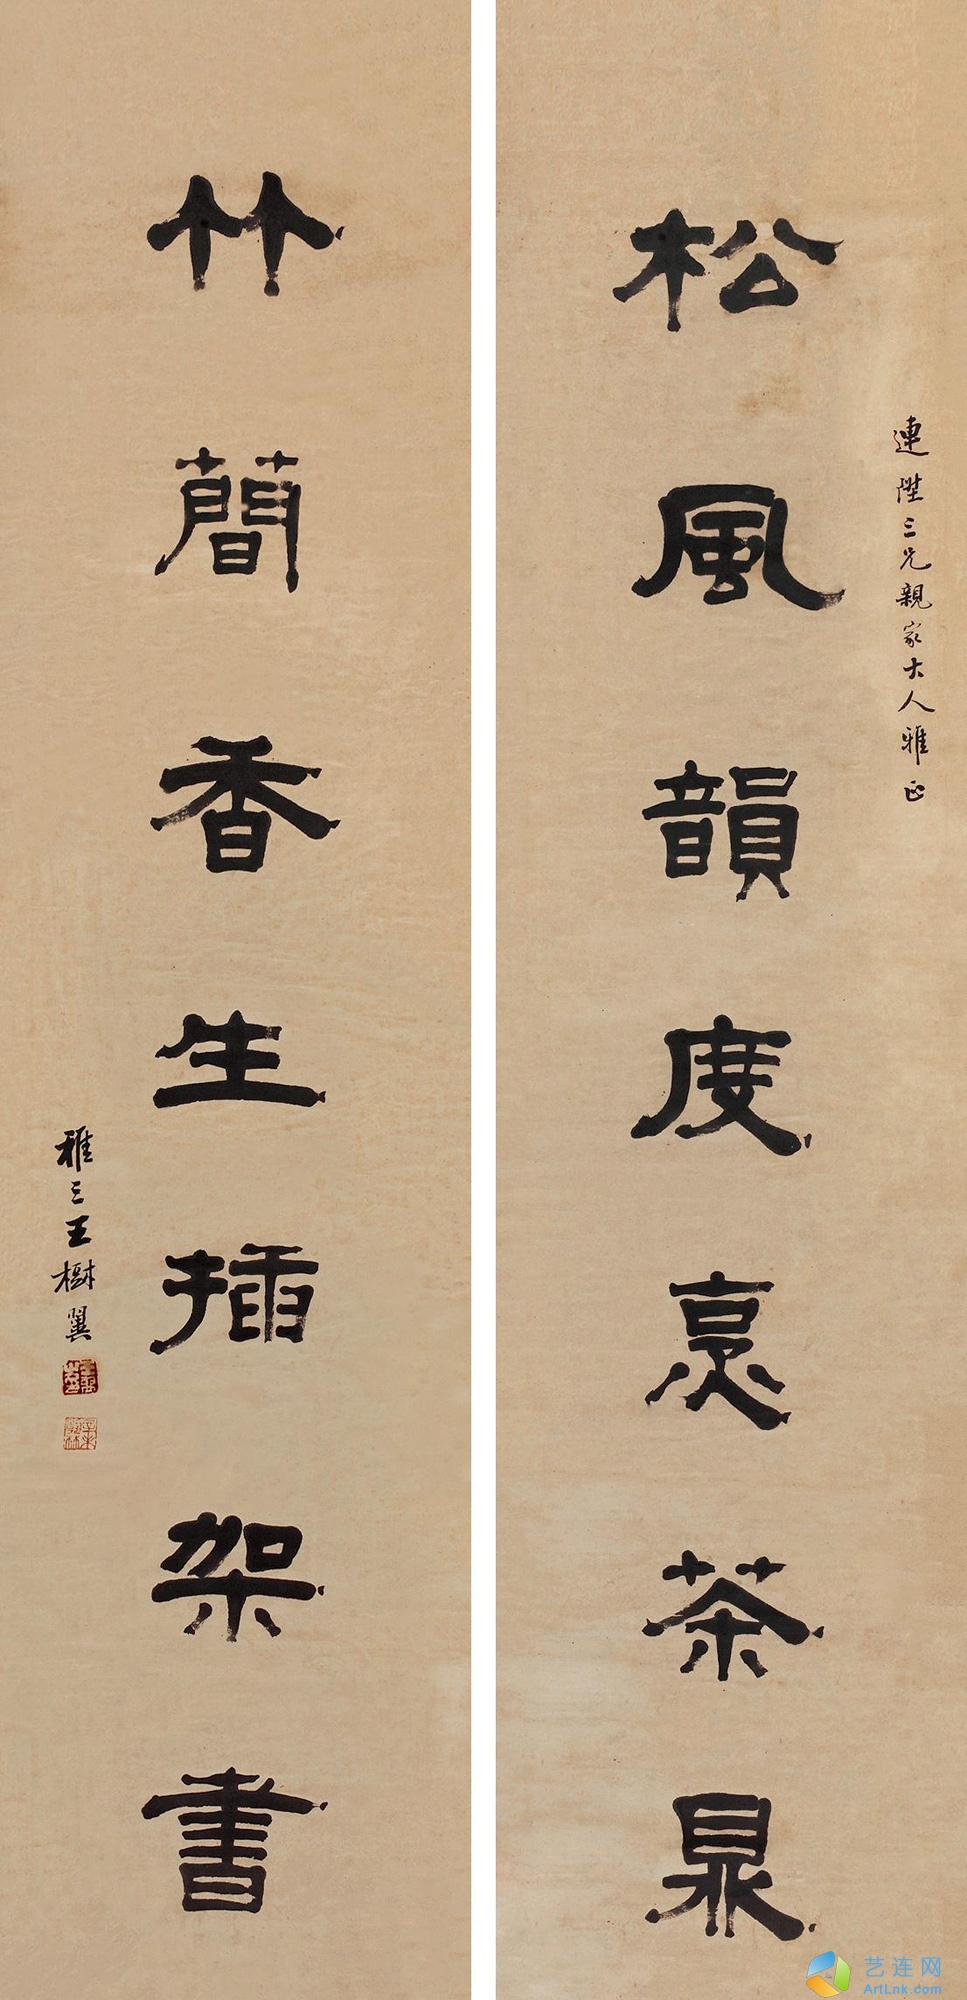 連陞三兄親家大人雅正
松風韻度烹茶鼎
竹簡香生插架書
雅三王樹翼
艺连网
ArtLnk.com